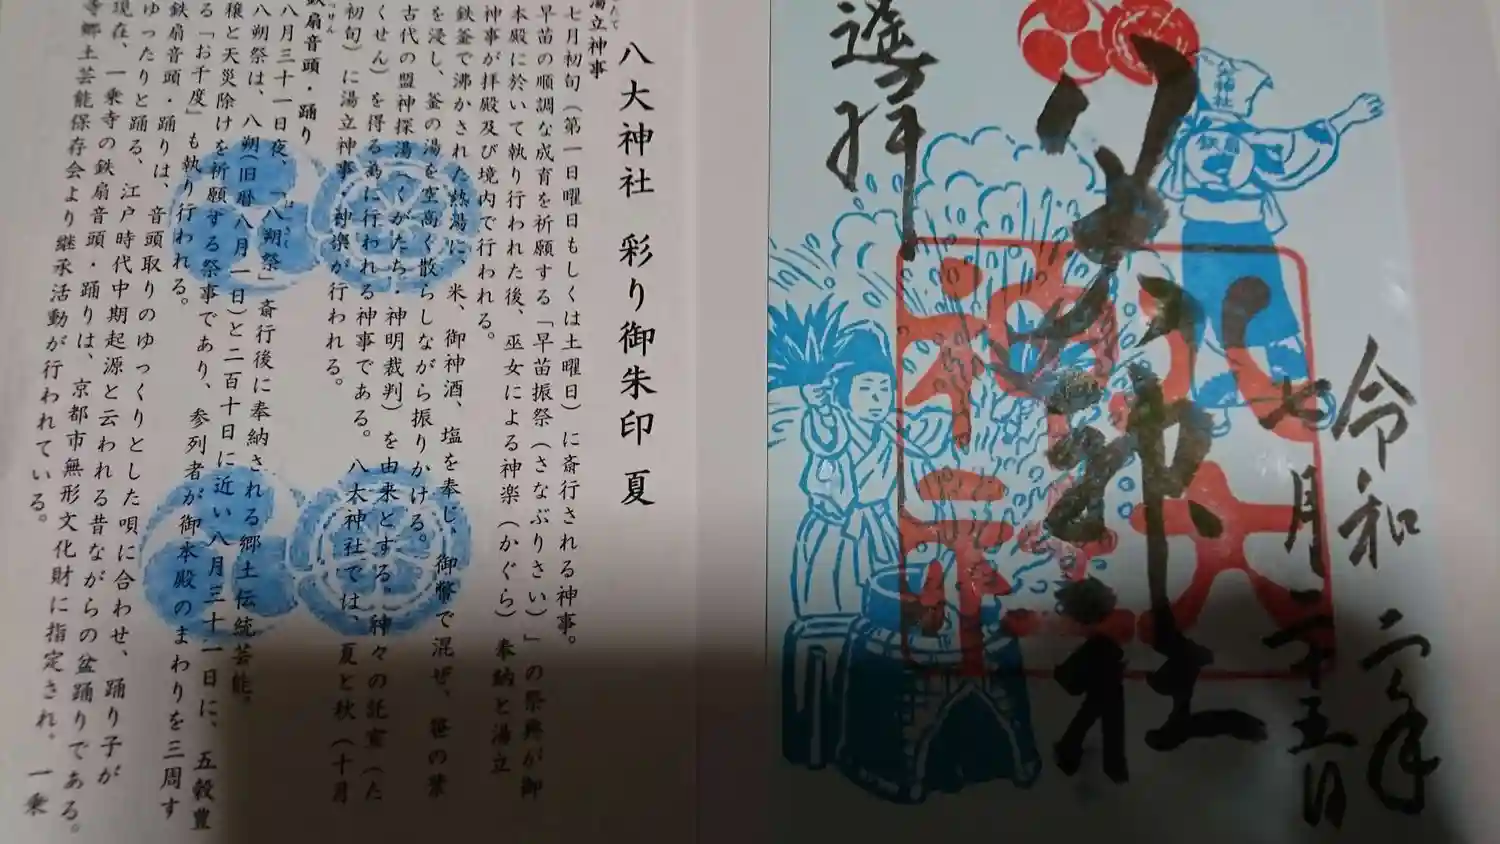 八大神社 彩り御朱印 夏
湯立神事
七月初旬（第一日曜日もしくは土曜日）に斎行される神事。
早苗の順調な成育を祈願する「早苗振祭（さなぶりさい）」の祭典が御
本殿に於いて執り行われた後、巫女による神楽（かぐら）奉納と湯立
神事が拝殿及び境内で行われる。
鉄釜で沸かされた熱湯に、米、御神酒、塩を奉じ、御幣で混ぜ、笹の葉
を浸し、釜の湯を空高く散らしながら振りかける。
古代の盟神探湯（くがたち・神明裁判）を由来とする。神々の託宣（た
くせん）を得る為に行われる神事である。八大神社では、夏と秋（十月
初旬）に湯立神事・神楽が行われる。
鉄扇音頭・踊り
八月三十一日夜、「八朔祭」斎行後に奉納される郷土伝統芸能。
八朔祭は、八朔（旧暦八月一日）と二百十日に近い八月三十一日に、五穀豊
穣と天災除けを祈願する祭事であり、参列者が御本殿のまわりを三周す
る「お千度」も執り行われる。
鉄扇音頭・踊りは、音頭取りのゆっくりとした唄に合わせ、踊り子が
ゆったりと踊る、江戸時代中期起源と云われる昔ながらの盆踊りである。
現在、一乗寺の鉄扇音頭・踊りは、京都市無形文化財に指定され、一乗
寺郷土芸能保存会より継承活動が行われている。
令和六年
七月二十五日
八大神社
遥拝
八大神社
八大神社
鉄扇